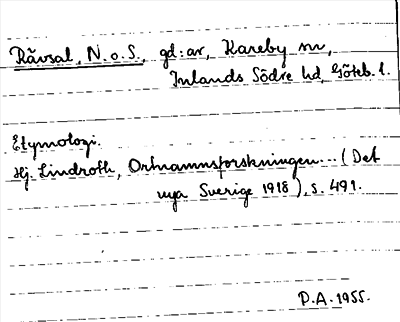 Rävsal, N. o. S., gd:ar, Kareby sn,
Inlands Södre hd, Göteb. l.
Etymologi.
Hj. Lindroth, Ortnamnsforskningen... (Det
nya Sverige 1918), s. 491.
P.A. 1955.